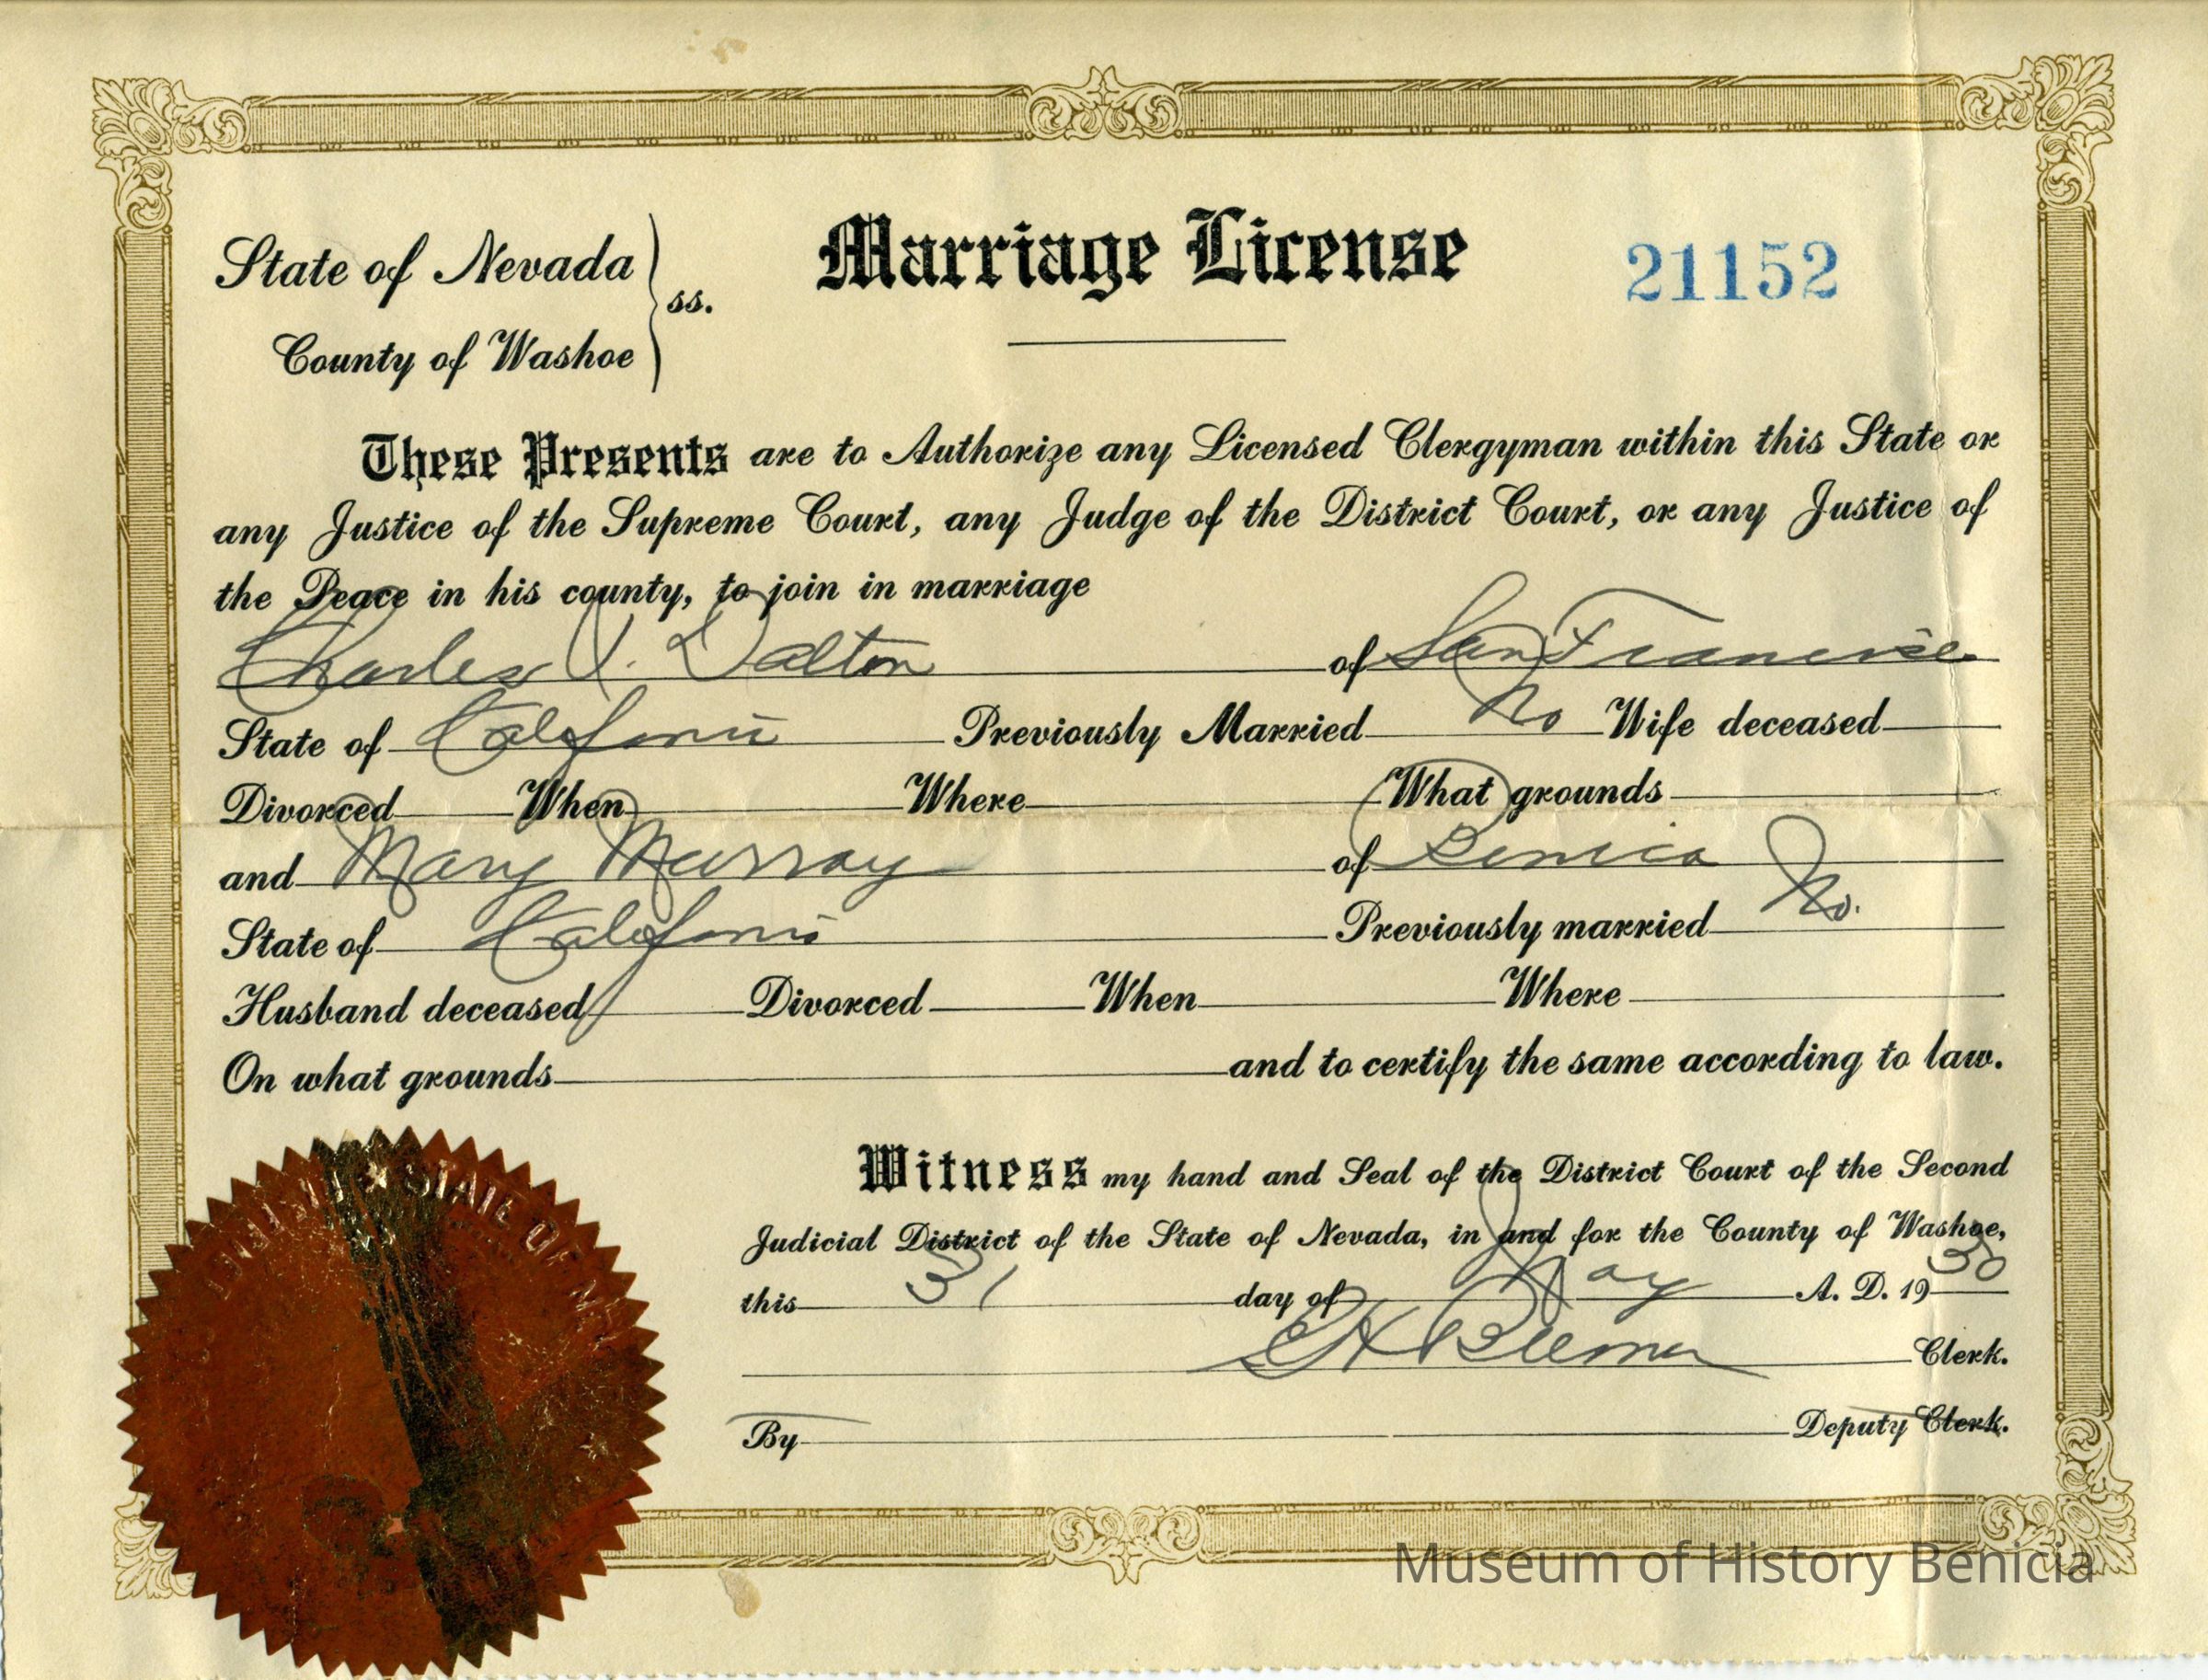 State of Nevada
County of Washoe
ss.
Marriage License
21152
These Presents are to Authorize any Licensed Clergyman within this State or
any Justice of the Supreme Court, any Judge of the District Court, or any Justice of
the Peace in his county, to join in marriage
Charles J. Dalton of San Francisco
State of California Previously Married No Wife deceased
Divorced When Where What grounds
and Mary Murray of Benicia
State of California Previously married No.
Husband deceased Divorced When Where
On what grounds and to certify the same according to law.
Witness my hand and Seal of the District Court of the Second
Judicial District of the State of Nevada, in and for the County of Washoe,
this 31 day of May A. D. 1930
Clerk.
By Deputy Clerk.
STATE OF
Museum of History Benicia